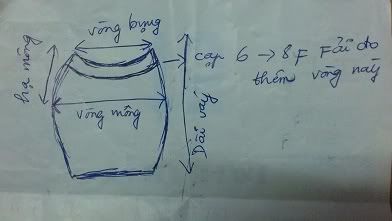 vòng bụng
hạ mông
cạp 6 → 8F Fải đo
thêm vòng này
vòng mông
Dài váy